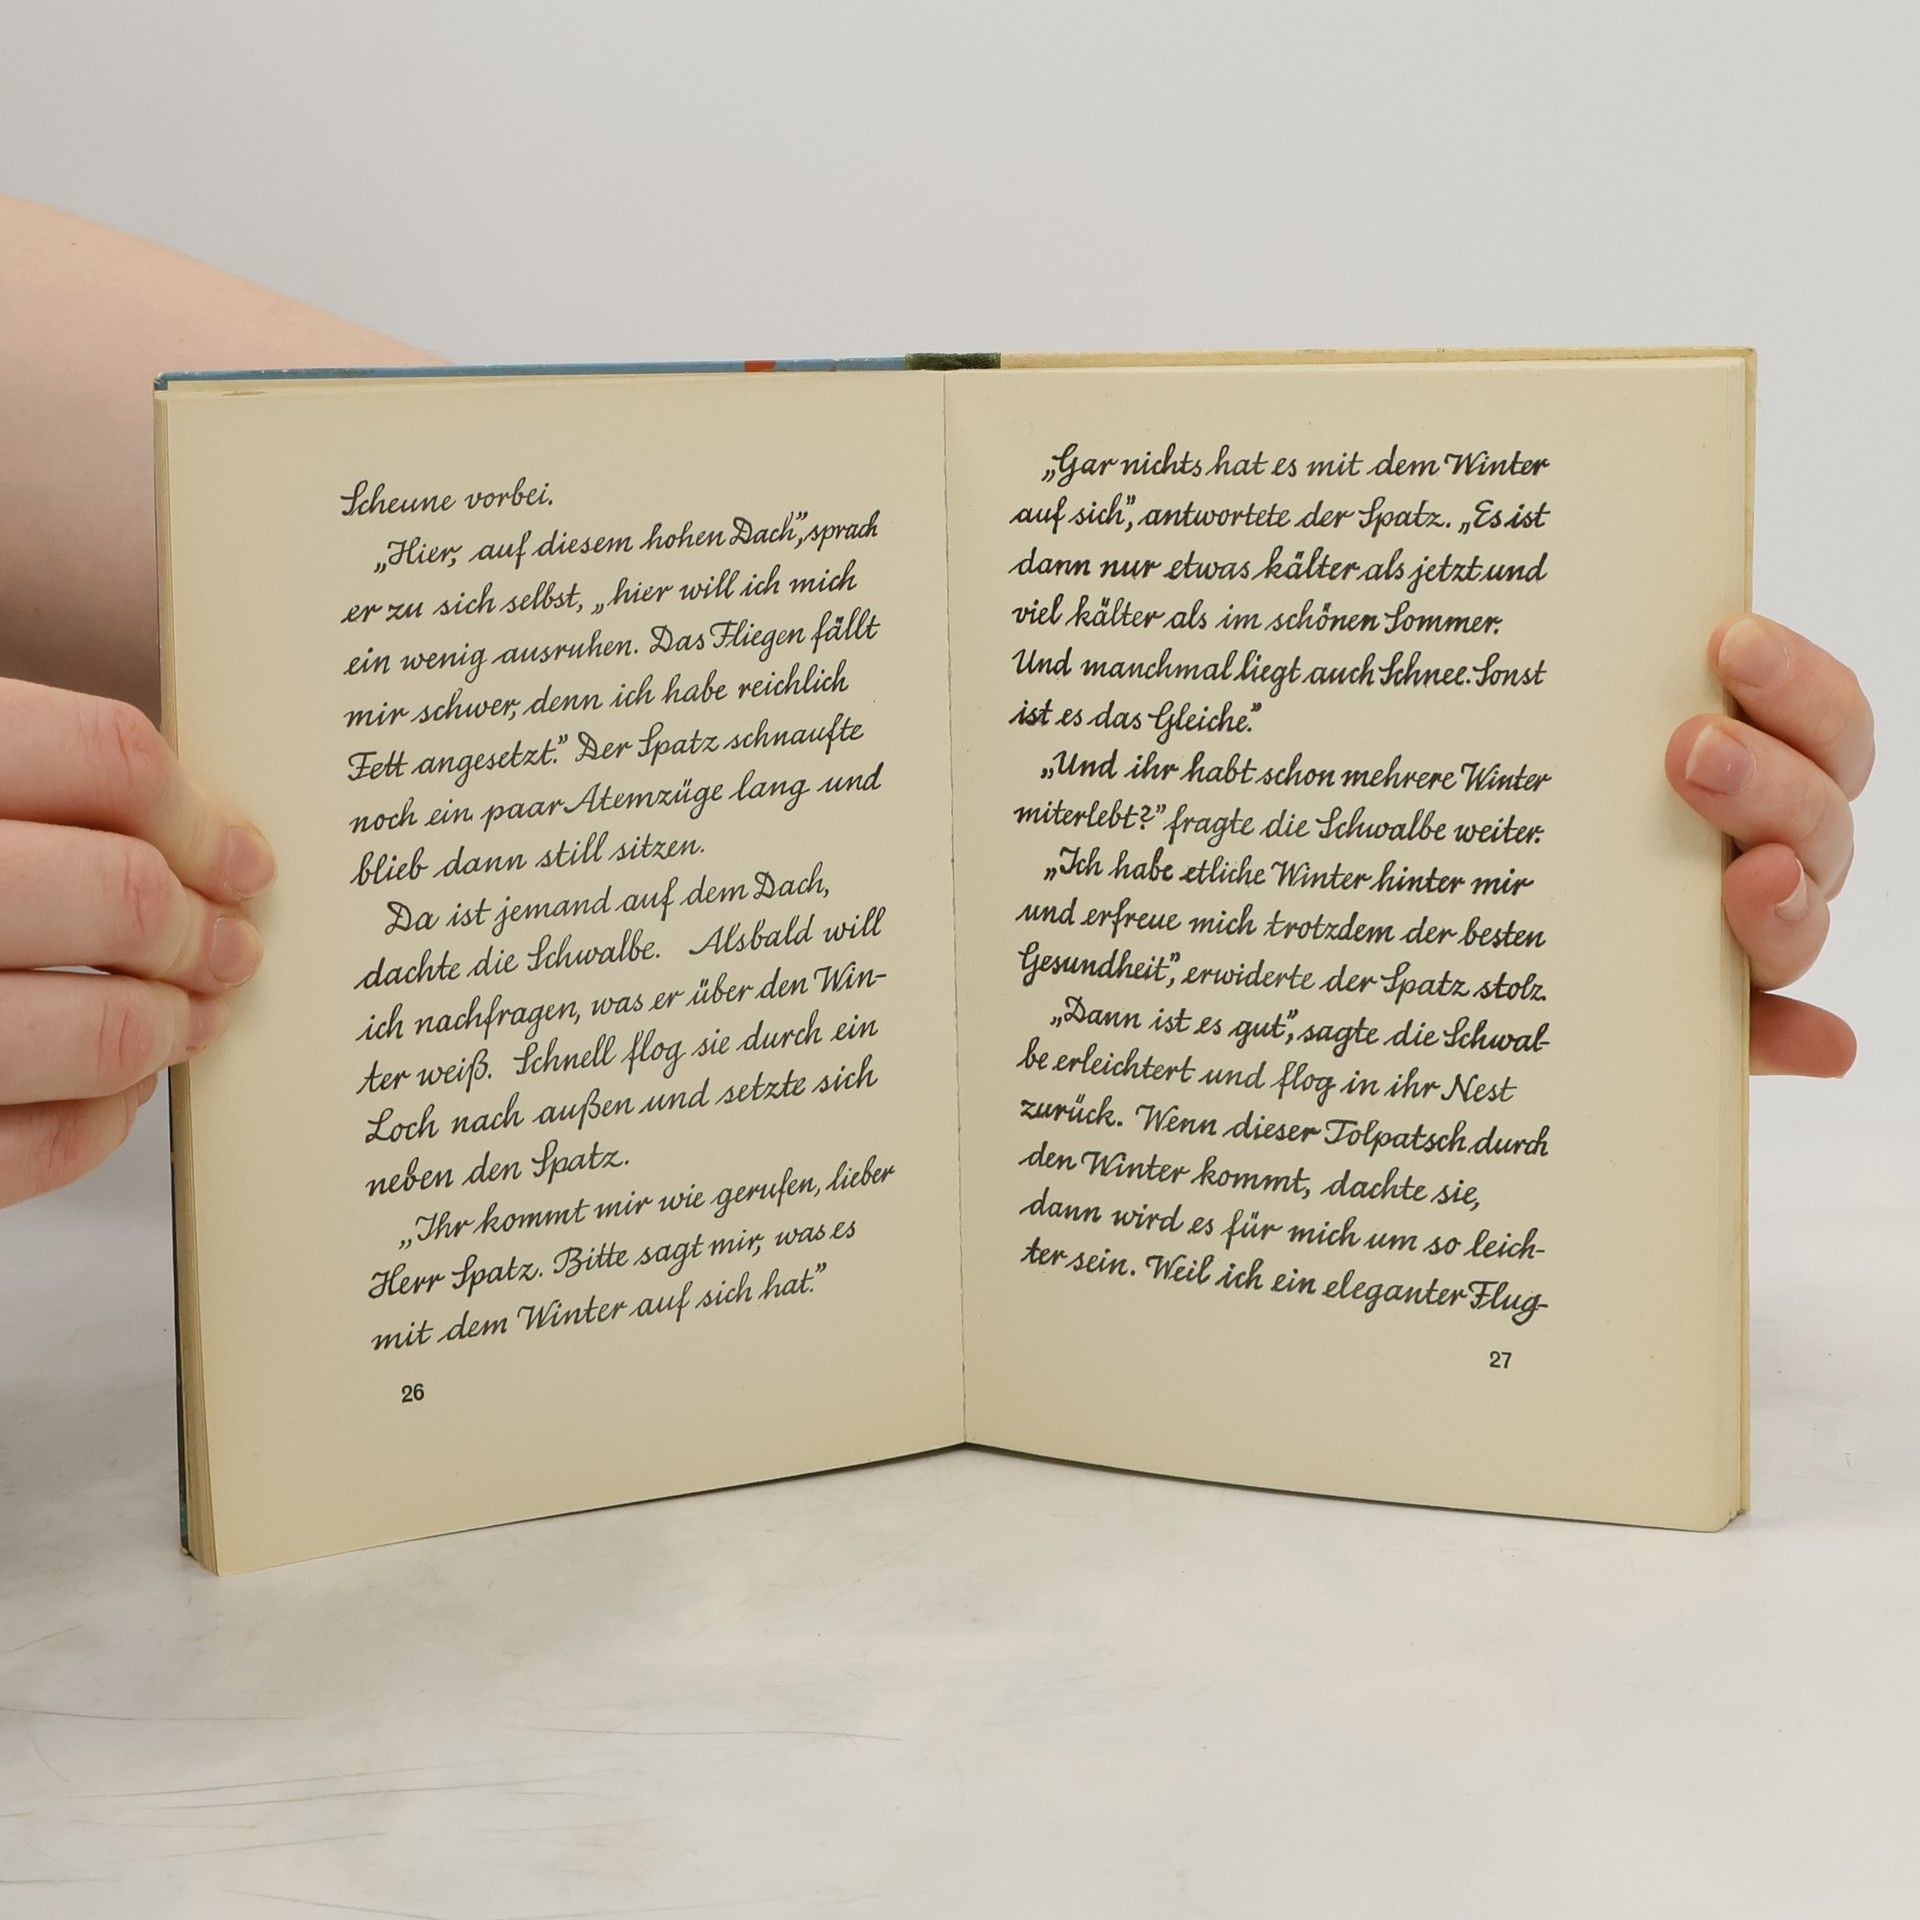 Scheune vorbei.
„Hier, auf diesem hohen Dach”, sprach
er zu sich selbst, „hier will ich mich
ein wenig ausruhen. Das Fliegen fällt
mir schwer, denn ich habe reichlich
Fett angesetzt.” Der Spatz schnaufte
noch ein paar Atemzüge lang und
blieb dann still sitzen.
Da ist jemand auf dem Dach,
dachte die Schwalbe. Alsbald will
ich nachfragen, was er über den Win-
ter weiß. Schnell flog sie durch ein
Loch nach außen und setzte sich
neben den Spatz.
„Ihr kommt mir wie gerufen, lieber
Herr Spatz. Bitte sagt mir, was es
mit dem Winter auf sich hat.”
26
„Gar nichts hat es mit dem Winter
auf sich”, antwortete der Spatz. „Es ist
dann nur etwas kälter als jetzt und
viel kälter als im schönen Sommer.
Und manchmal liegt auch Schnee. Sonst
ist es das Gleiche.”
„Und ihr habt schon mehrere Winter
miterlebt?” fragte die Schwalbe weiter.
„Ich habe etliche Winter hinter mir
und erfreue mich trotzdem der besten
Gesundheit”, erwiderte der Spatz stolz.
„Dann ist es gut”, sagte die Schwal-
be erleichtert und flog in ihr Nest
zurück. Wenn dieser Tolpatsch durch
den Winter kommt, dachte sie,
dann wird es für mich um so leich-
ter sein. Weil ich ein eleganter Flug-
27